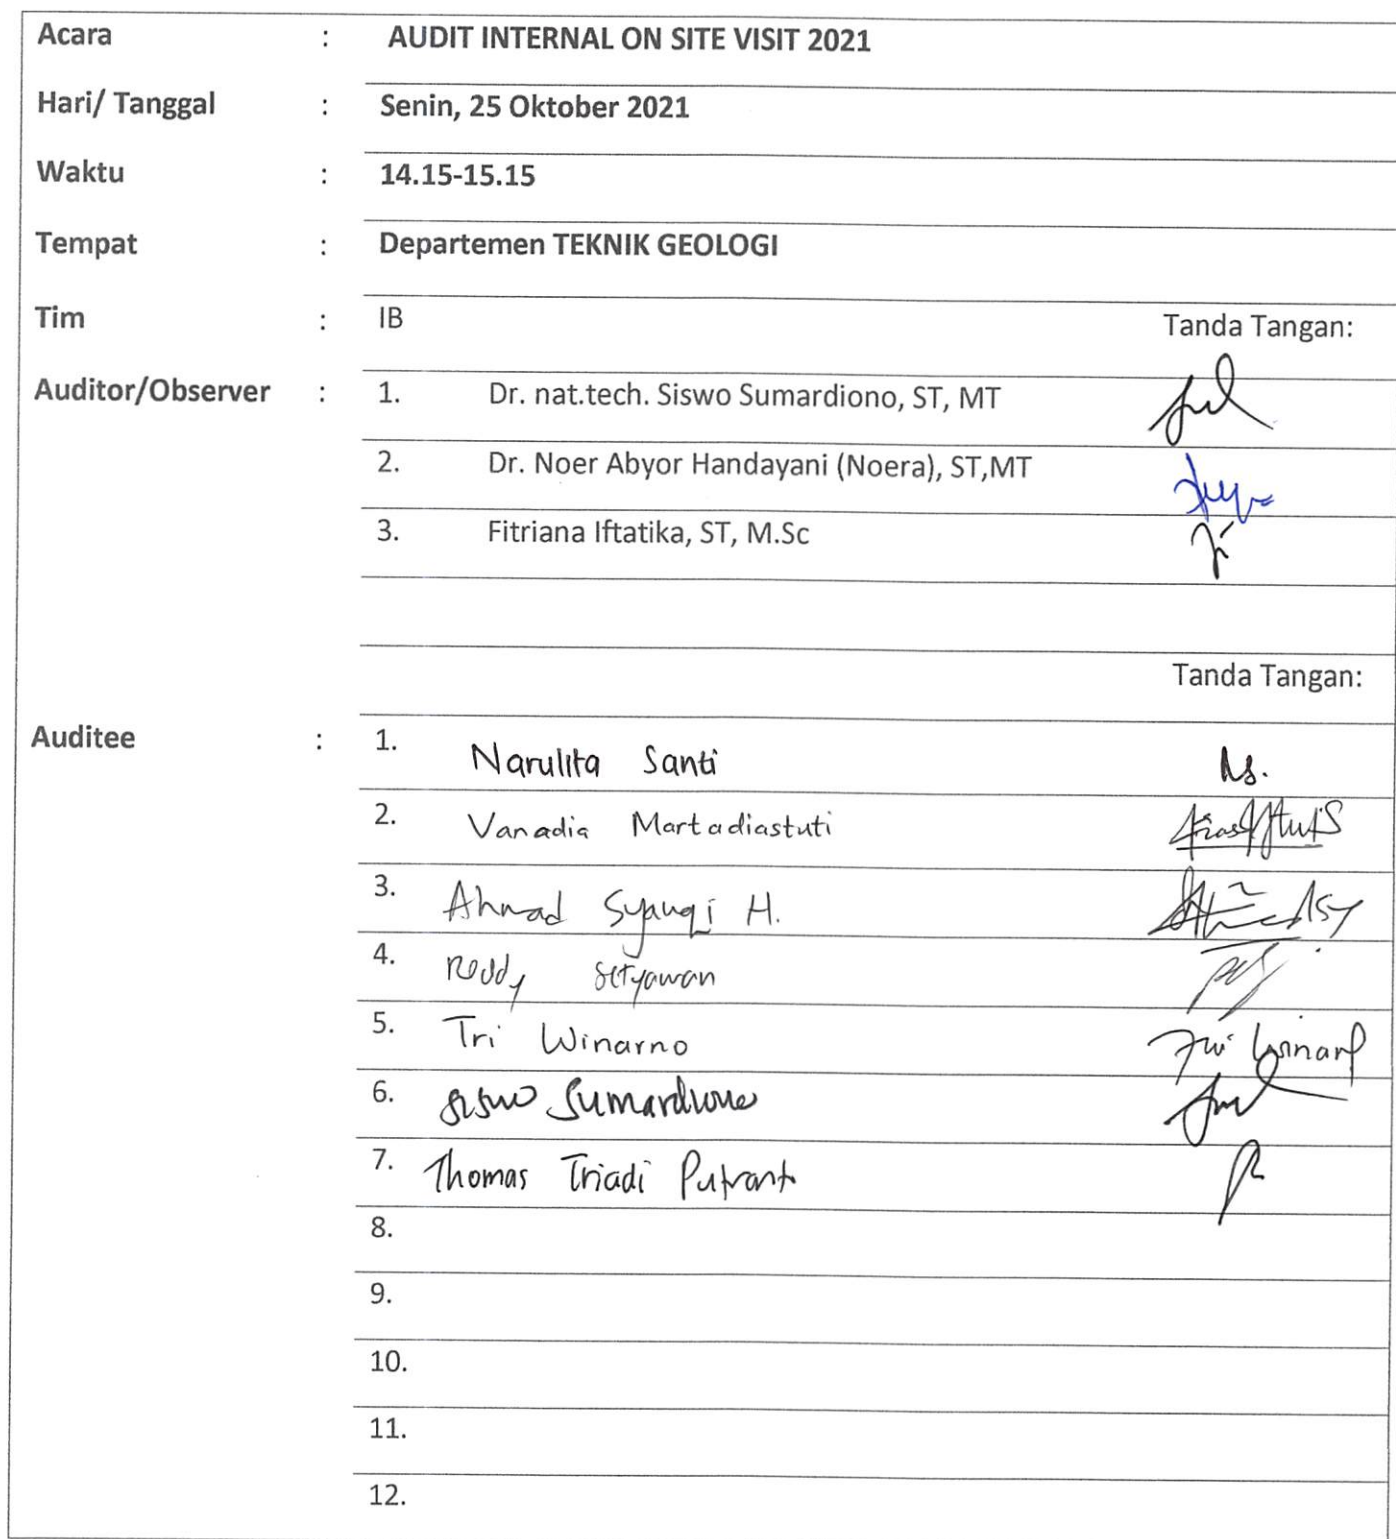 Acara : AUDIT INTERNAL ON SITE VISIT 2021
Hari/ Tanggal : Senin, 25 Oktober 2021
Waktu : 14.15-15.15
Tempat : Departemen TEKNIK GEOLOGI
Tim : IB Tanda Tangan:
Auditor/Observer : 1. Dr. nat.tech. Siswo Sumardiono, ST, MT
2. Dr. Noer Abyor Handayani (Noera), ST,MT
3. Fitriana Iftatika, ST, M.Sc
Tanda Tangan:
Auditee : 1. Narulita Santi Ns.
2. Vanadia Martadiastuti
3. Ahmad Syauqi H.
4. Reddy Setyawan
5. Tri Winarno Tri Winarno
6. Siswo Sumardiono
7. Thomas Triadi Putranto
8.
9.
10.
11.
12.